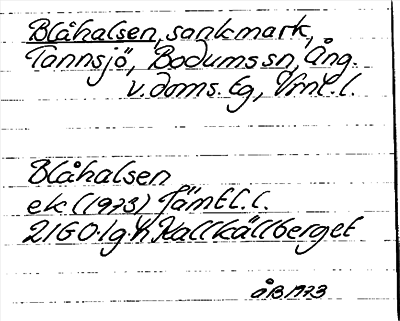 Blåhalsen, sankmark,
Tannsjö, Bodums sn, Ång.
v. doms. Eg, Vrnl. l.
Blåhalsen
ek. (1973) Jämtl. l.
21G 0-1 g-h Kallkällberget
åB 1973